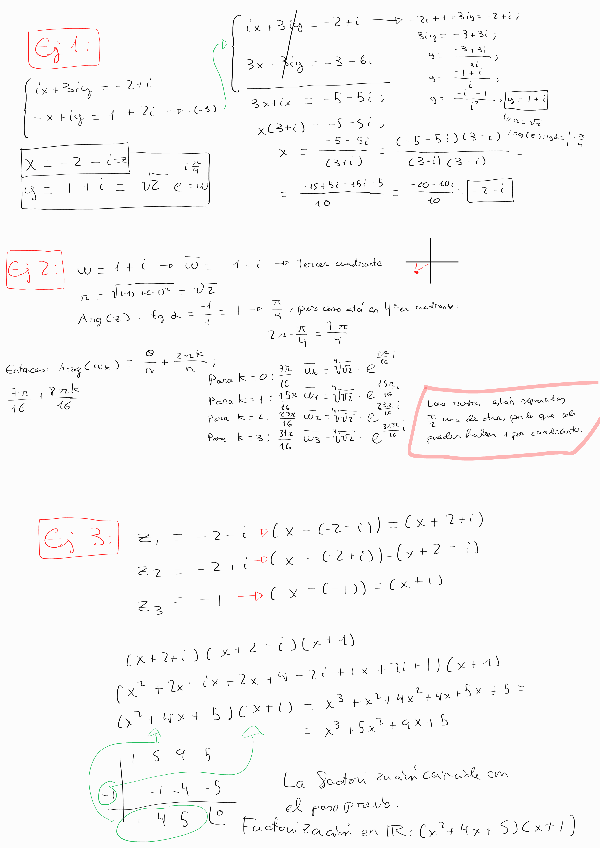 Ej 1:
ix + 3iy = -2 + i
-x + iy = 1 + 2i → (-3)
x = -2 - i
y = 1 + i = √2 e
ix + 3iy = -2 + i
3x - 3iy = -3 - 6i
3x + ix = -5 - 5i;
x(3+i) = -5 - 5i;
x = (-5-5i)/(3+i) = (-5-5i)(3-i)/(3+i)(3-i) =
= (-15+5i-15i-5)/10 = (-20-10i)/10 = -2-i
2i + 1 + 3iy = -2 + i;
3iy = -3 + 3i;
y = (-3+3i)/3i;
y = (-1+i)/i;
y = 1 + i
Ej 2: w = 1 + i → w̄ = 1 - i → Tercer cuadrante
r = √((1)² + (-1)²) = √2
Arg(z) = tg α = -1/1 = 1 → π/4, pero como está en 4º cuadrante.
2π - π/4 = 7π/4
Entonces: Arg(wk) = θ/n + 2πk/n;
7π/16 + 8πk/16
Para k = 0: 7π/16 w0 = ⁴√√2 · e^(7π/16 i)
Para k = 1: 15π/16 w1 = ⁴√√2 · e^(15π/16 i)
Para k = 2: 23π/16 w2 = ⁴√√2 · e^(23π/16 i)
Para k = 3: 31π/16 w3 = ⁴√√2 · e^(31π/16 i)
Las raíces están separadas
π/2 una de otra, por lo que sólo
pueden haber 1 por cuadrante.
Ej 3:
z1 = -2 - i → (x - (-2-i)) = (x + 2 + i)
z2 = -2 + i → (x - (-2+i)) = (x + 2 - i)
z3 = -1 → (x - (-1)) = (x + 1)
(x+2+i)(x+2-i)(x+1)
(x² + 2x - ix + 2x + 4 - 2i + ix + 2i + 1)(x+1)
(x² + 4x + 5)(x+1) = x³ + x² + 4x² + 4x + 5x + 5 =
= x³ + 5x² + 9x + 5
1 5 9 5
-1 -1 -4 -5
1 4 5 0
La
en
el
Factorización en ℝ: (x² + 4x + 5)(x+1)